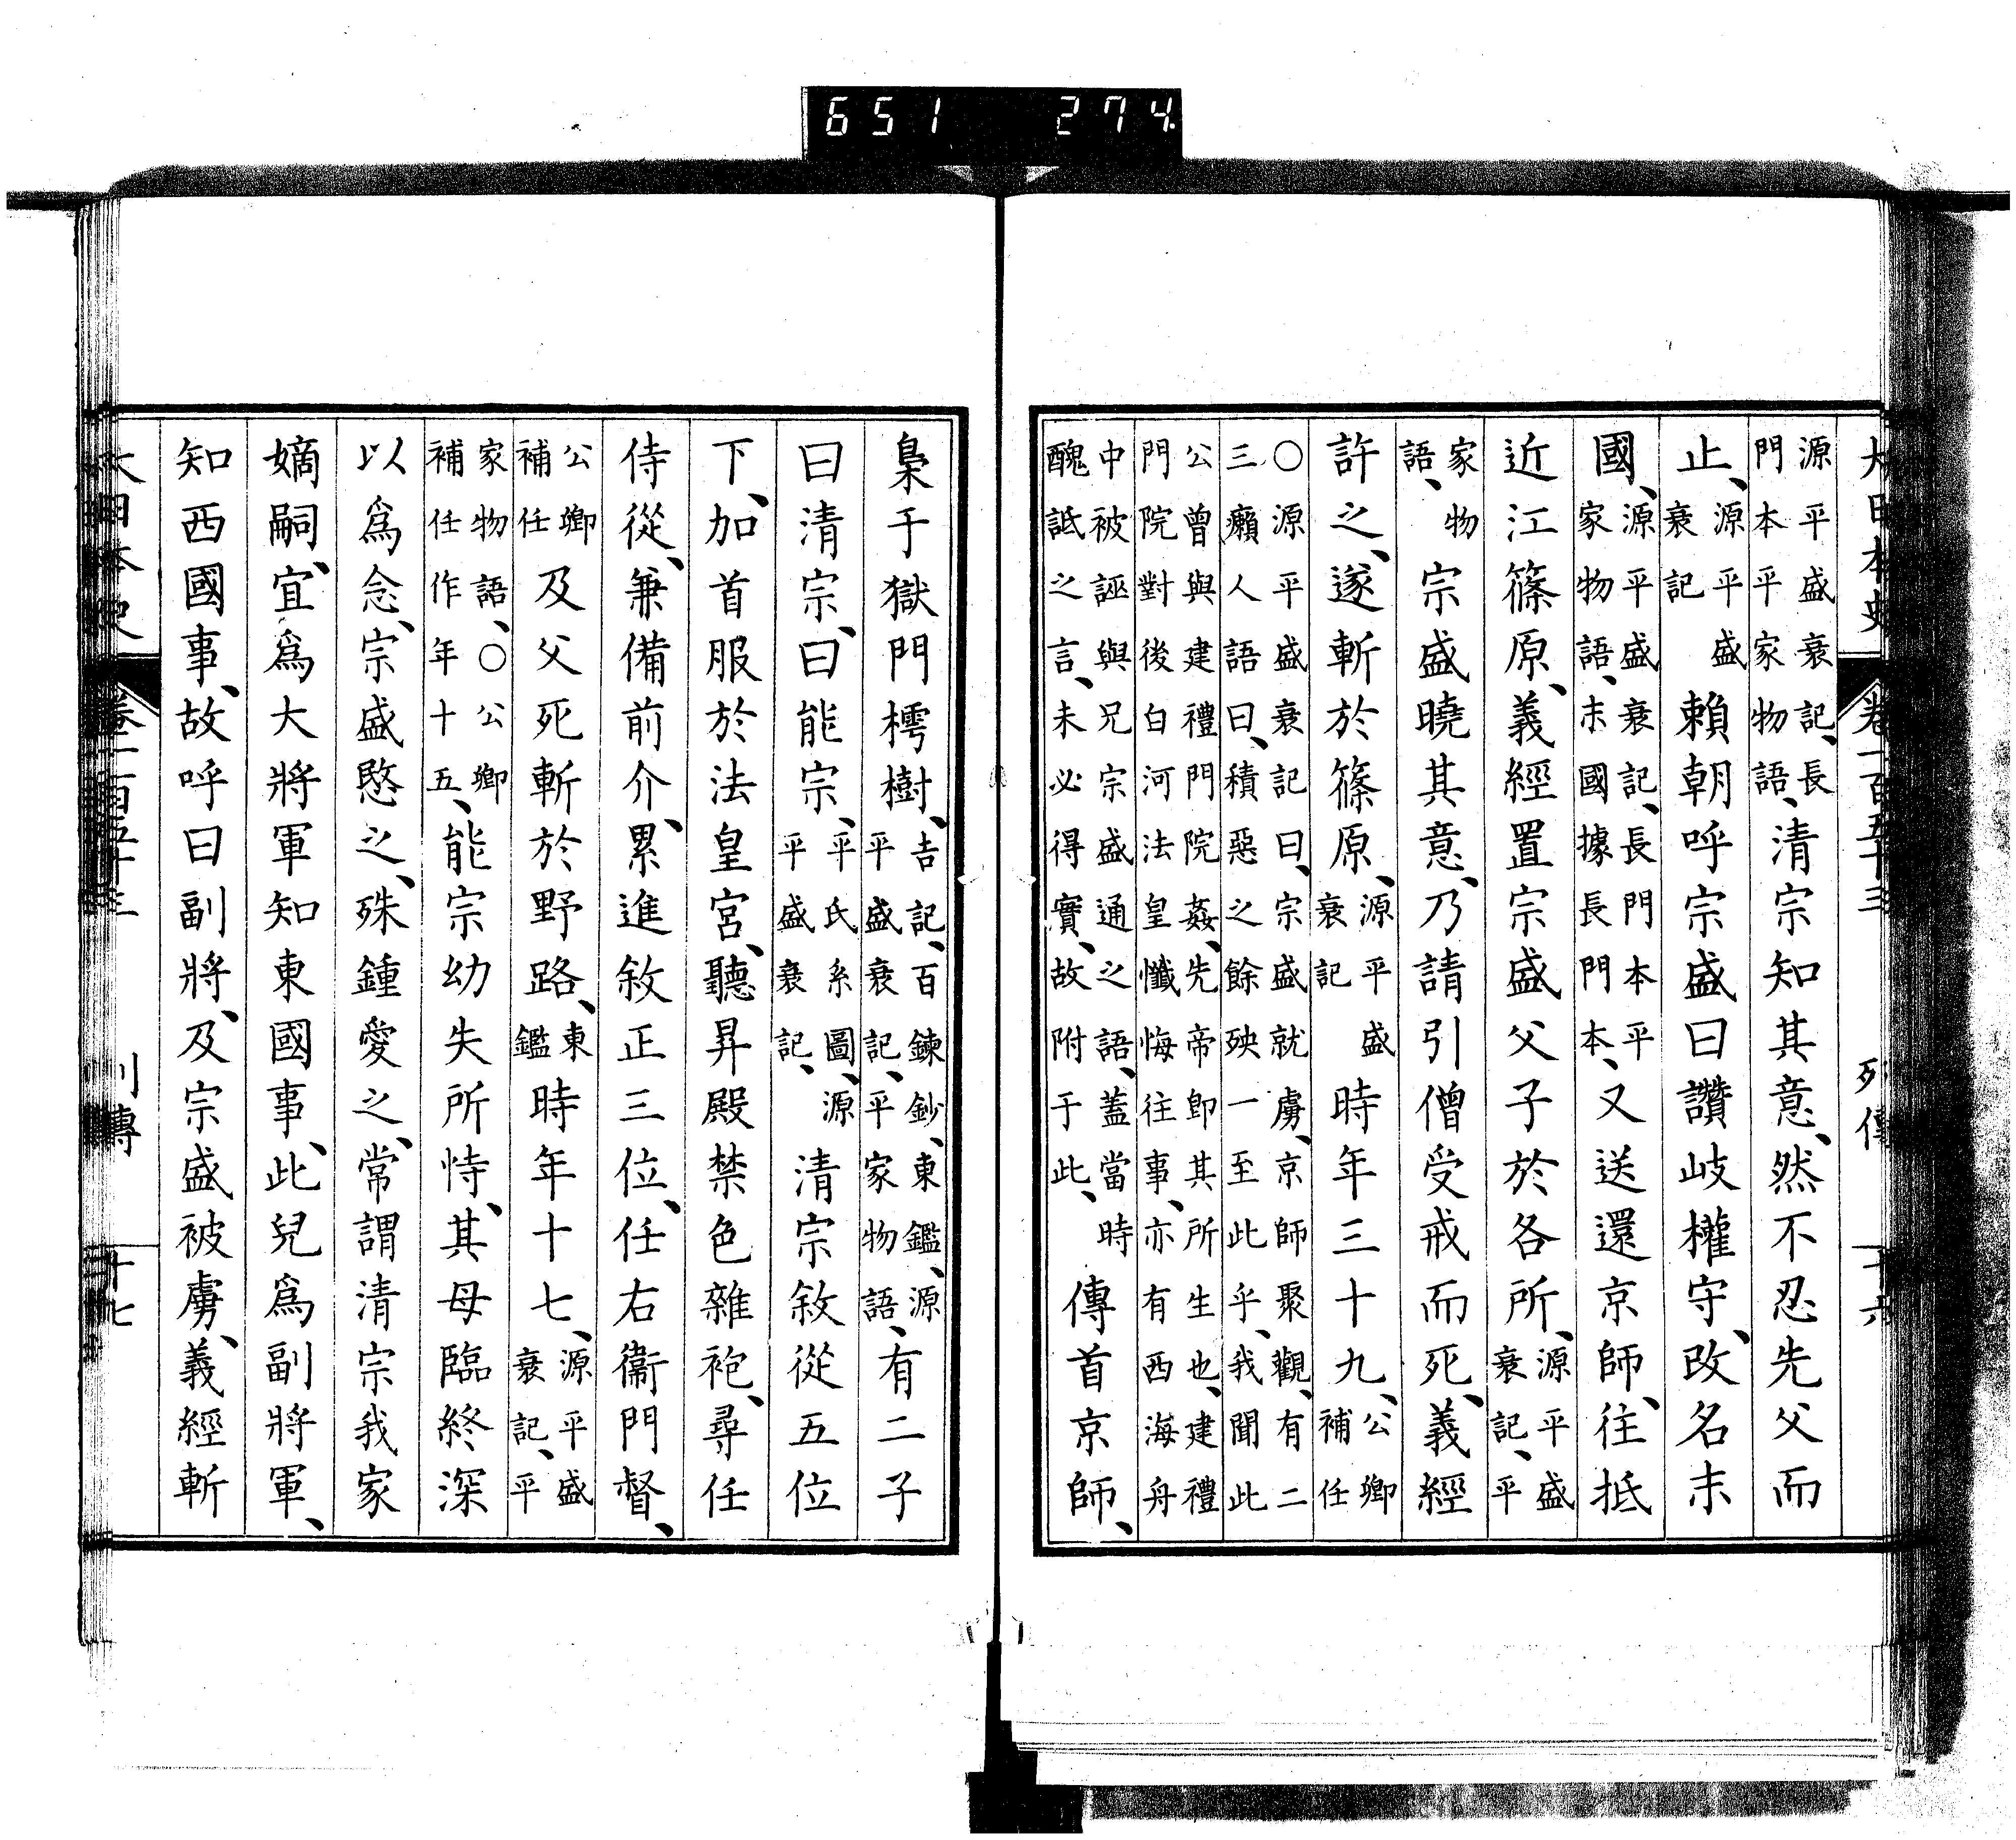 大日本史 卷一百五十三 列傳 十六
源平盛衰記、長門本平家物語、清宗知其意、然不忍先父而
止、源平盛衰記賴朝呼宗盛曰讚岐權守、改名末
國、源平盛衰記、長門本平家物語、末國據長門本、又送還京師、往抵
近江篠原、義經置宗盛父子於各所、源平盛衰記、平
家物語、宗盛曉其意、乃請引僧受戒而死、義經
許之、遂斬於篠原、源平盛衰記時年三十九、公卿補任
○源平盛衰記曰、宗盛就虜、京師聚觀、有二三癩人語曰、積惡之餘殃一至此乎、我聞此
公曾與建禮門院姦、先帝卽其所生也、建禮門院對後白河法皇懺悔往事、亦有西海舟
中被誣與兄宗盛通之語、蓋當時醜詆之言、未必得實、故附于此、傳首京師、
梟于獄門樗樹、吉記、百鍊鈔、東鑑、源平盛衰記、平家物語、有二子
曰清宗、曰能宗、平氏系圖、源平盛衰記、清宗敘從五位
下、加首服於法皇宮、聽昇殿禁色雜袍、尋任
侍從、兼備前介、累進敘正三位、任右衞門督、
公卿補任及父死斬於野路、東鑑時年十七、源平盛衰記、平
家物語、○公卿補任作年十五、能宗幼失所恃、其母臨終深
以爲念、宗盛愍之、殊鍾愛之、常謂清宗我家
嫡嗣、宜爲大將軍知東國事、此兒爲副將軍、
知西國事、故呼曰副將、及宗盛被虜、義經斬
大日本史 卷一百五十三 列傳 十七
651 274